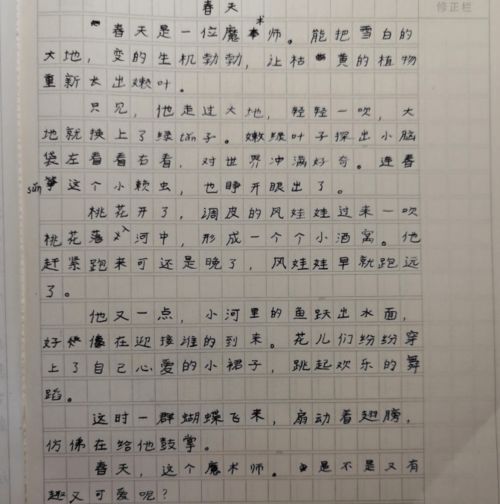 修正栏
春天
春天是一位魔术师。能把雪白的
大地，变的生机勃勃，让枯黄的植物
重新长出嫩叶。
只见，他走过大地，轻轻一吹，大
地就换上了绿tǎn子。嫩绿叶子探出小脑
袋左看看右看，对世界冲满好奇。连春
sǔn笋这个小赖虫，也睁开眼出了。
桃花开了，调皮的风娃娃过来一吹
桃花落入河中，形成一个个小酒窝。他
赶紧跑来可还是晚了，风娃娃早就跑远
了。
他又一点，小河里的鱼跃出水面，
好像在迎接谁的到来。花儿们纷纷穿
上了自己心爱的小裙子，跳起欢乐的舞
蹈。
这时一群蝴蝶飞来，扇动着翅膀，
仿佛在给他鼓掌。
春天，这个魔术师。是不是又有
趣又可爱呢？